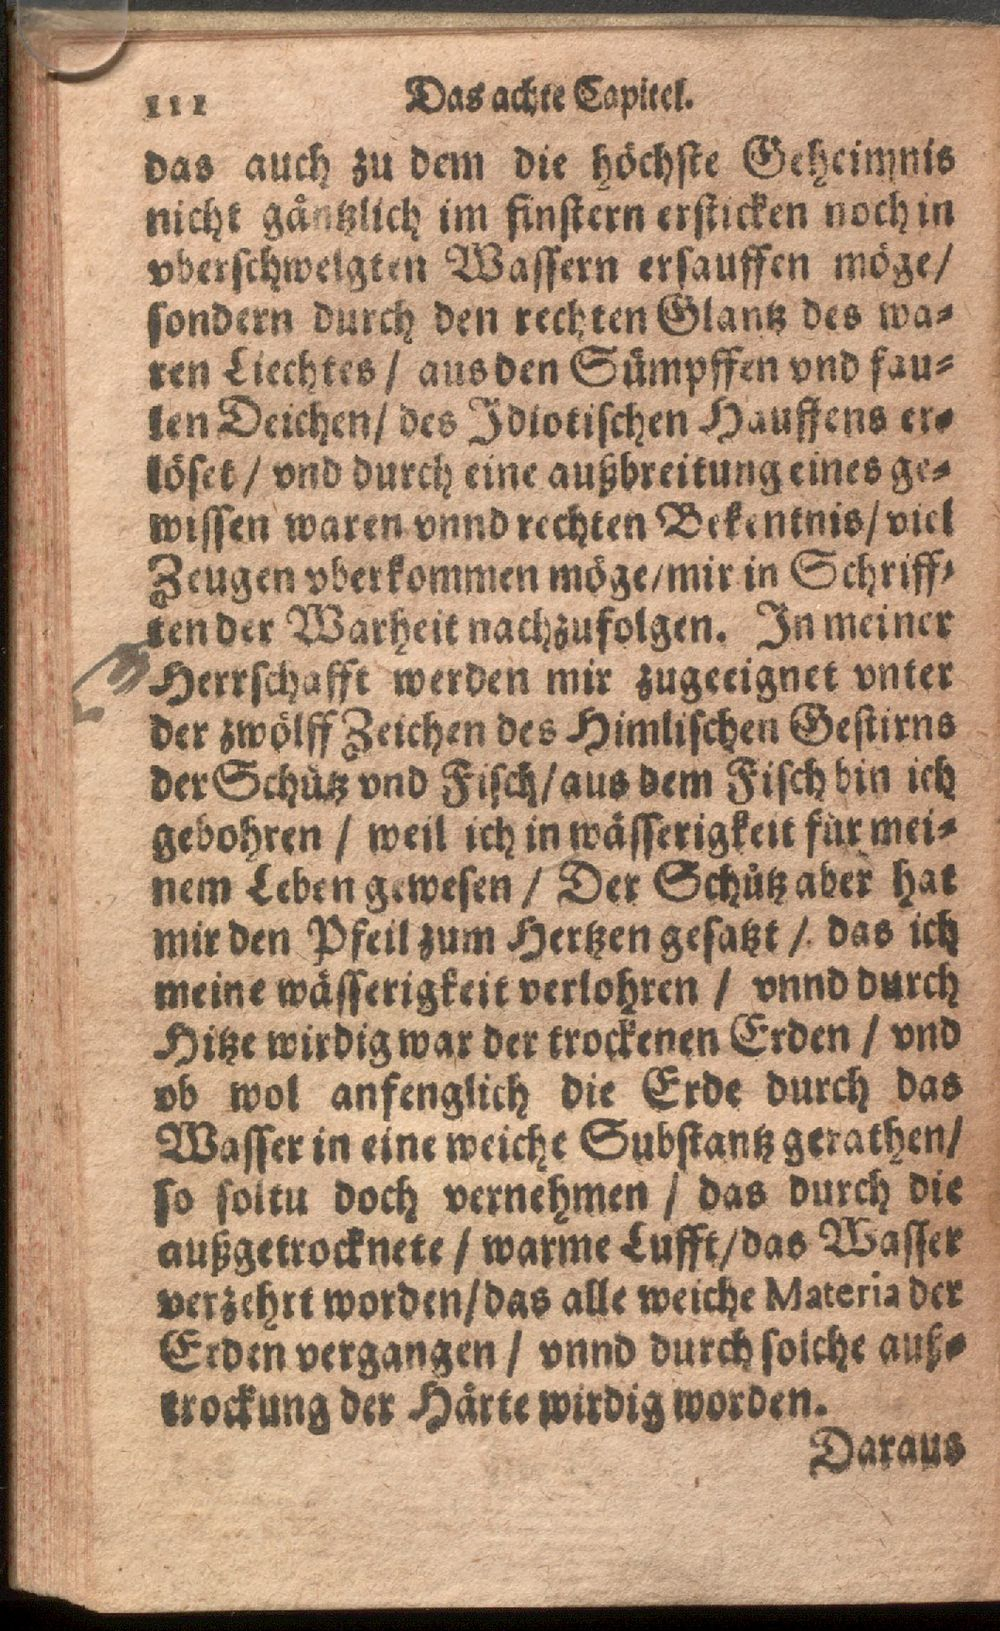 111 Das achte Capitel.
das auch zu dem die höchste Geheimnis
nicht gäntzlich im finstern ersticken noch in
vberschwelgten Wassern ersauffen möge/
sondern durch den rechten Glantz des wa-
ren Liechtes / aus den Sümpffen vnd fau-
len Deichen/ des Idiotischen Hauffens er-
löset / vnd durch eine außbreitung eines ge-
wissen waren vnnd rechten Bekentnis/ viel
Zeugen vberkommen möge/mir in Schriff-
ten der Warheit nachzufolgen. In meiner
Herrschafft werden mir zugeeignet vnter
der zwölff Zeichen des Himlischen Gestirns
der Schütz vnd Fisch/aus dem Fisch bin ich
gebohren / weil ich in wässerigkeit für mei-
nem Leben gewesen / Der Schütz aber hat
mir den Pfeil zum Hertzen gesatzt /. das ich
meine wässerigkeit verlohren / vnnd durch
Hitze wirdig war der trockenen Erden / vnd
ob wol anfenglich die Erde durch das
Wasser in eine weiche Substantz gerathen/
so soltu doch vernehmen / das durch die
außgetrocknete / warme Lufft/das Wasser
verzehrt worden/das alle weiche Materia der
Erden vergangen / vnnd durch solche auß-
trockung der Härte wirdig worden.
Daraus